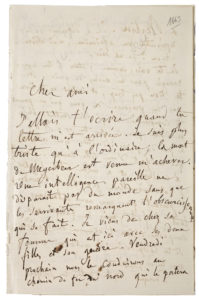 Cher ami
J'allais t'écrire quand ta
lettre m'est arrivée. Je suis plus
triste qu'à l'ordinaire, la mort
de Meyerbeer est venue m'achever.
une intelligence pareille ne
disparait pas du monde sans que
les survivants remarquent l'obscurcissement
qui se fait. Je viens de chez sa
femme qui est ici avec les deux
filles et son gendre. Vendredi
prochain nous le conduirons au
chemin de fer du nord qui le